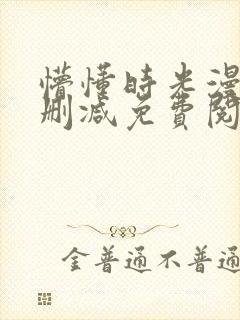 懵懂时光漫
删减免费阅
金普通不普通